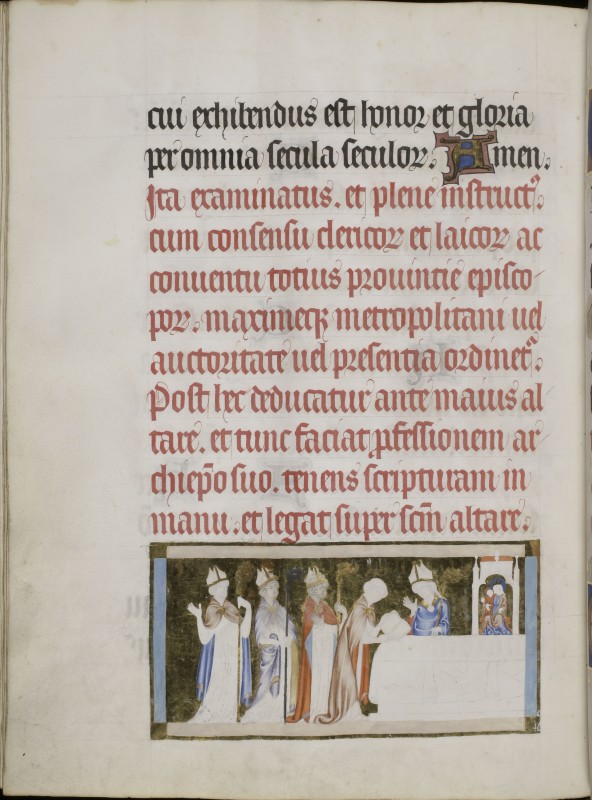 cui exhibendus est honor et gloria
per omnia secula seculoꝝ. Amen.
Ita examinatus. et plene instructꝰ.
cum consensu clericoꝝ et laicoꝝ ac
conuentu totius prouincie episco-
poꝝ. maximeqꝫ metropolitani uel
auctoritate uel presentia ordinet᷑.
Post hec deducatur ante maius al
tare. et tunc faciat ꝓfessionem ar-
chiep̄o suo. tenens scripturam in
manu. et legat super sc̄m altare.